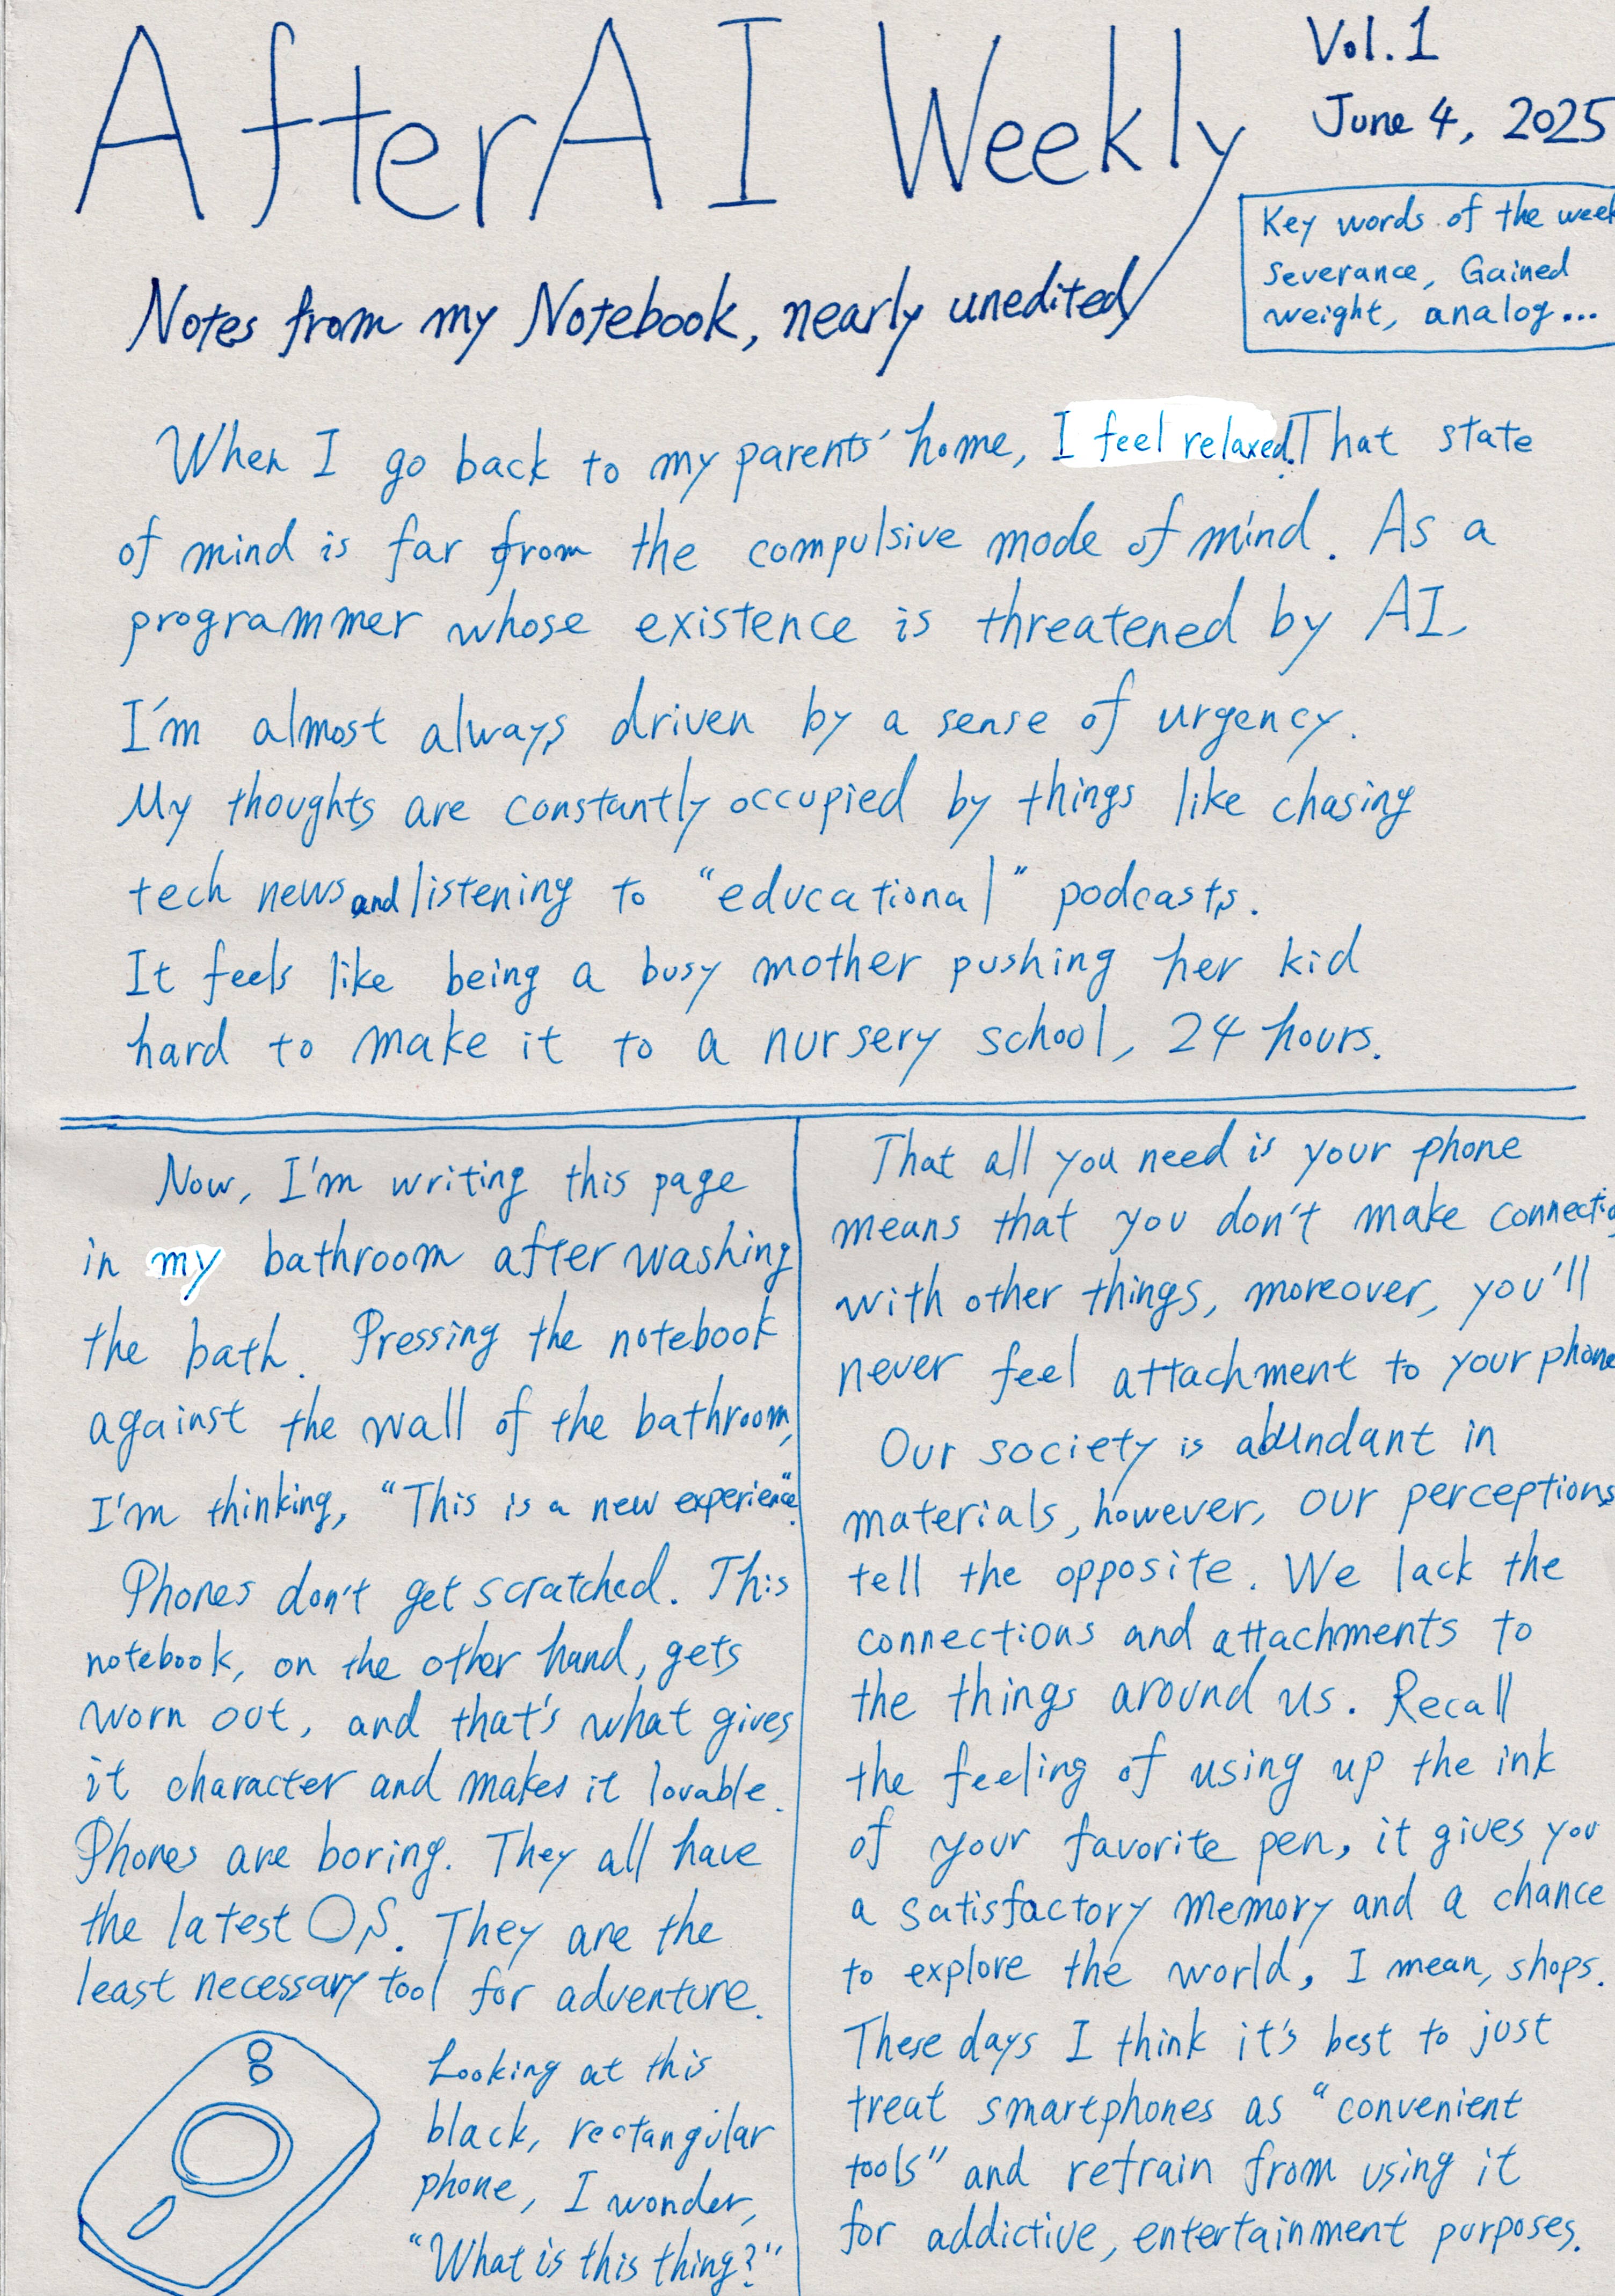 AfterAI Weekly
Vol. 1
June 4, 2025
Key words of the week
Severance, Gained
weight, analog...
Notes from my Notebook, nearly unedited
When I go back to my parents' home, I feel relaxed. That state
of mind is far from the compulsive mode of mind. As a
programmer whose existence is threatened by AI,
I'm almost always driven by a sense of urgency.
My thoughts are constantly occupied by things like chasing
tech news and listening to "educational" podcasts.
It feels like being a busy mother pushing her kid
hard to make it to a nursery school, 24 hours.
Now, I'm writing this page
in my bathroom after washing
the bath. Pressing the notebook
against the wall of the bathroom,
I'm thinking, "This is a new experience".
Phones don't get scratched. This
notebook, on the other hand, gets
worn out, and that's what gives
it character and makes it lovable.
Phones are boring. They all have
the latest OS. They are the
least necessary tool for adventure.
Looking at this
black, rectangular
phone, I wonder,
"What is this thing?"
That all you need is your phone
means that you don't make connectio
with other things, moreover, you'll
never feel attachment to your phone
Our society is abundant in
materials, however, our perceptions
tell the opposite. We lack the
connections and attachments to
the things around us. Recall
the feeling of using up the ink
of your favorite pen, it gives you
a satisfactory memory and a chance
to explore the world, I mean, shops.
These days I think it's best to just
treat smartphones as "convenient
tools" and refrain from using it
for addictive, entertainment purposes.